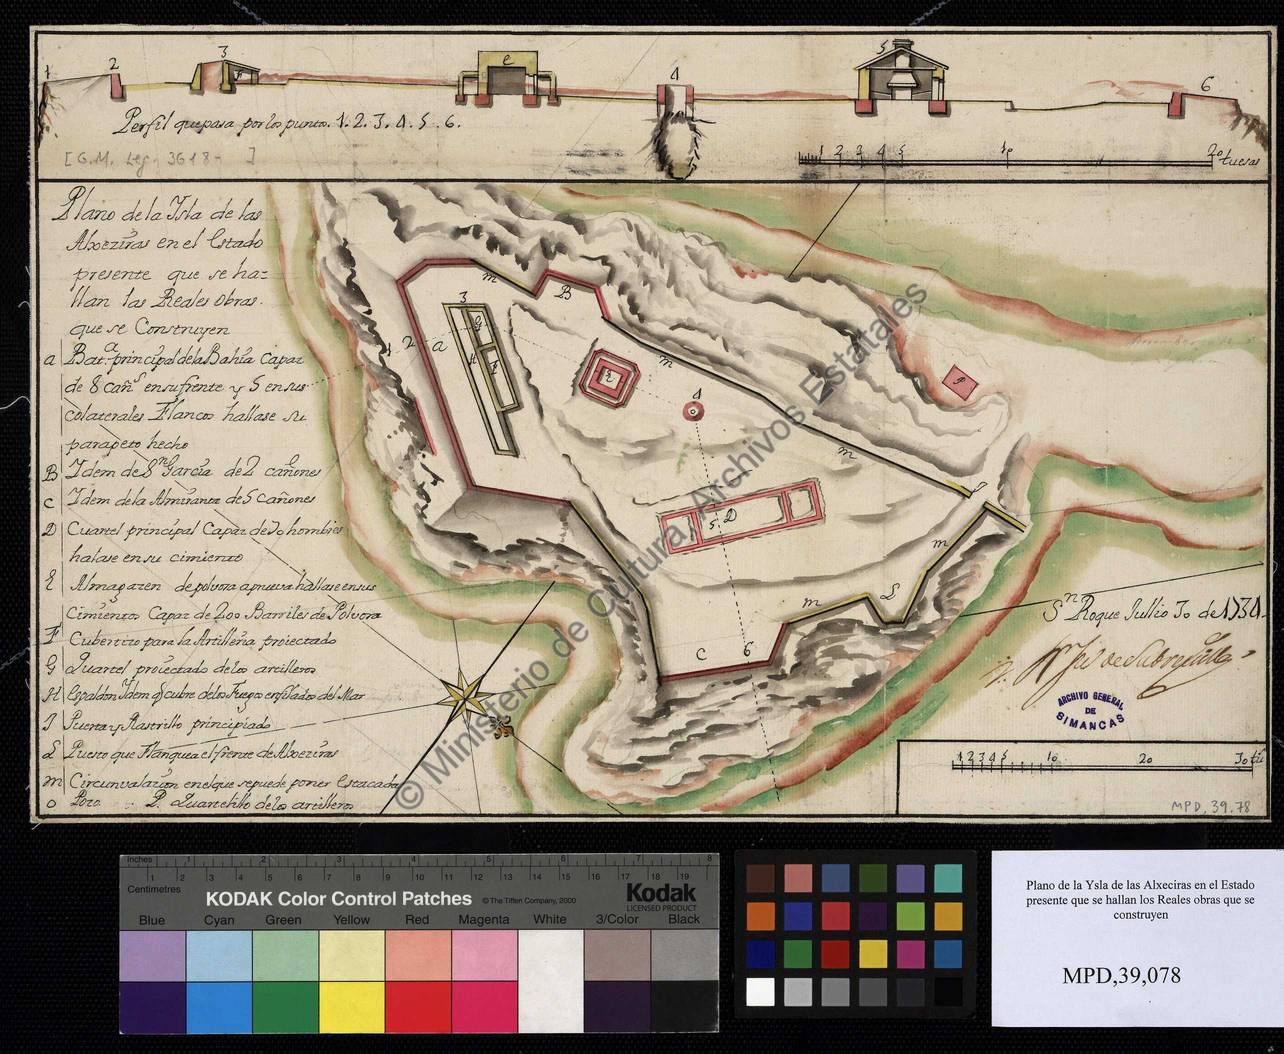 1 2 3 F e 4 5 6
Perfil que pasa por los puntos. 1. 2. 3. 4. 5. 6.
[G.M. Leg. 3618- ]
1 2 3 4 5 10 20 tuesas
Plano de la Ysla de las
Alxeziras en el Estado
presente que se ha=
llan las Reales obras.
que se Construyen
a Bat.a principal de la Bahia Capaz
de 8 cañs en su frente y 5 en sus
colaterales Flancos hallase su
parapeto hecho
B Idem de Sn Garcia de 2 cañones
C Idem de la Almiranta de 5 cañones
D Cuartel principal Capaz de 70 hombres
halase en su cimiento
E Almagazen de polvora a prueva hallase en sus
Cimientos Capaz de 200 Barriles de Polvora
F Cubertizo para la Artilleria proiectado
G Quartel proiectado de los artilleros
H Espaldon Idem q Cubre de los Fuegos enfilados del Mar
I Puerta y Rastrillo principiado
L Puesto que Flanquea el frente de Alxeziras
m Circunvalazion en el que se puede poner Estacada
o Pozo. P. Quartelillo de los artilleros
m B 3 G H F 1 2 a E 4 m P m I 5 D m L m C 6
Sn Roque Jullio 30 de 1734.
ARCHIVO GENERAL
DE
SIMANCAS
1 2 3 4 5 10 20 30 tu
MPD. 39. 78
© Ministerio de Cultura, Archivos Estatales
Inches 1 2 3 4 5 6 7 8
Centimetres 1 2 3 4 5 6 7 8 9 10 11 12 13 14 15 16 17 18 19
KODAK Color Control Patches © The Tiffen Company, 2000 Kodak
LICENSED PRODUCT
Blue Cyan Green Yellow Red Magenta White 3/Color Black
Plano de la Ysla de las Alxeciras en el Estado
presente que se hallan los Reales obras que se
construyen
MPD,39,078